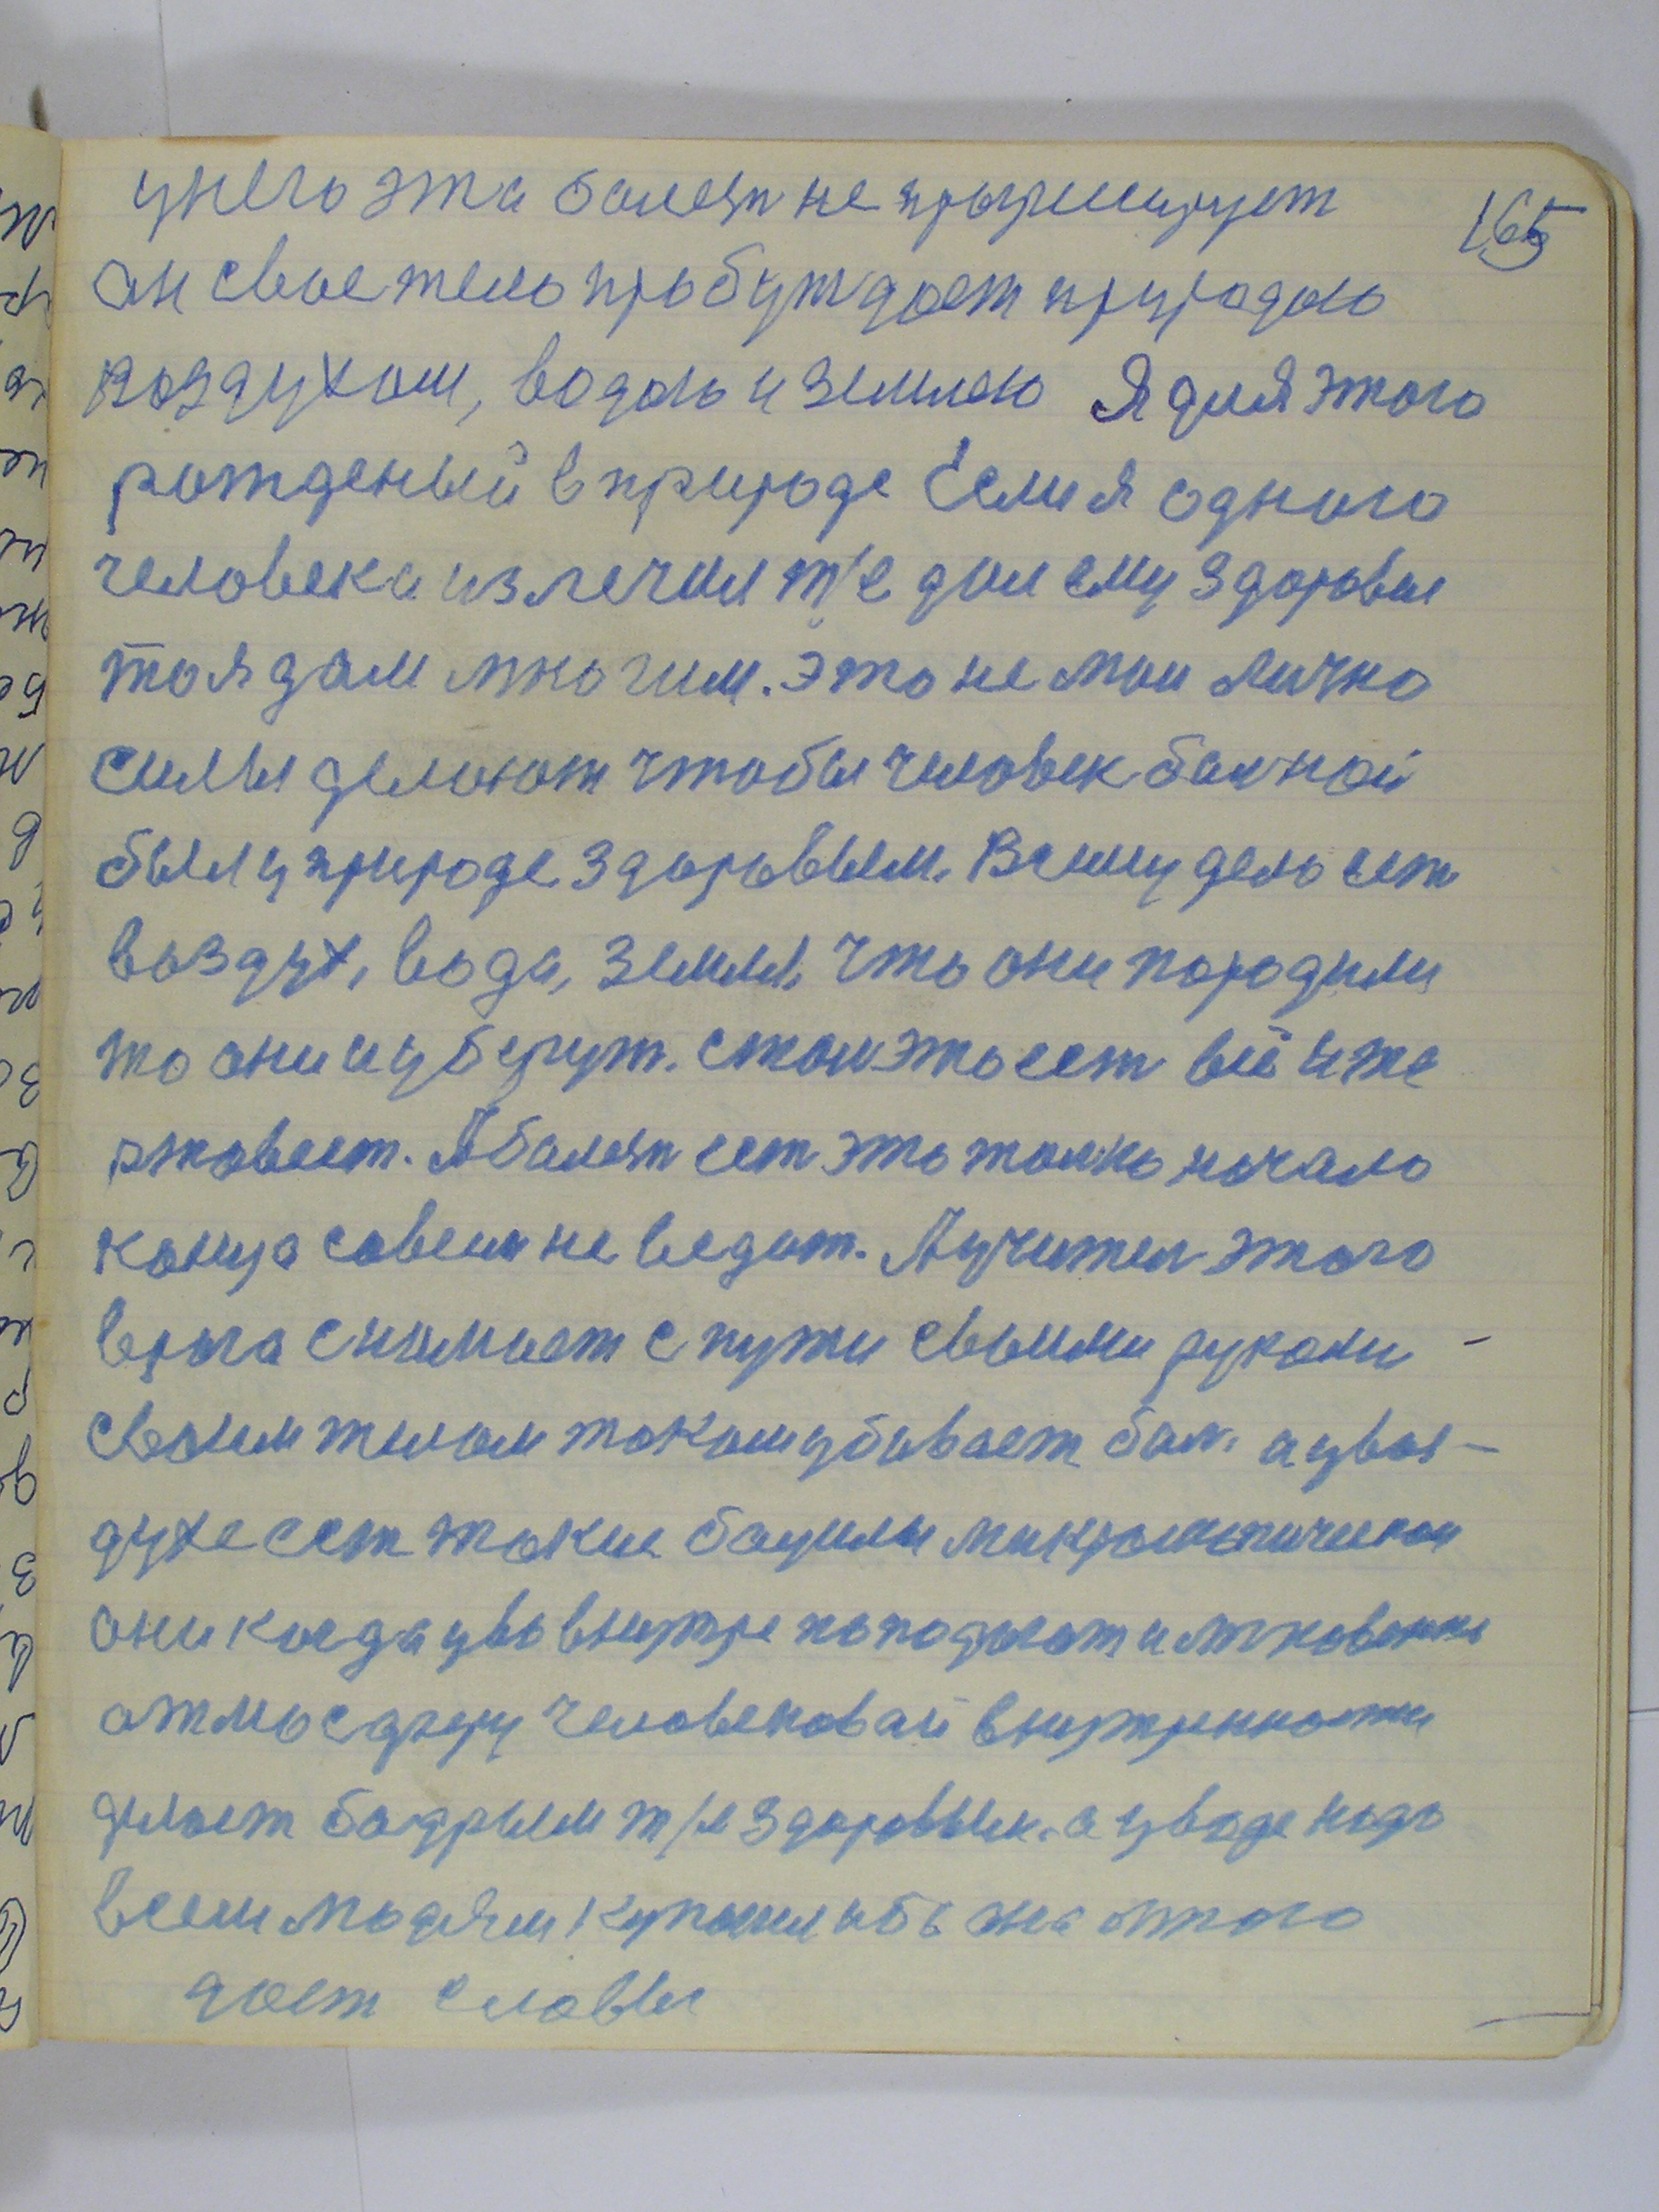 165
унего эта болезн не прогресирует
он свое тело пробуждает природою
воздухом, водою и землею Я для этого
рожденый в природе Если я одного
человека излечил т/е дал ему здоровие
то я дам многим. Это не мои лично
силы делают чтобы человек болной
был у природе здоровым. Всему дело ест
воздух, вода, земля, что они породили
то они и уберут. стои это ест всё и же
ржавеет. А болезн ест это толко начало
конца совсем не видит. А учител этого
врага снимает с пути своими руками –
своим телом током убивает бол. а увоз–
духе ест такие бацилы
они когда уво внутре попадают и мгновенно
атмосферу человековай внутренности
делает бодрым т/е здоровым. а у воде надо
всем людям купаться
дает славы